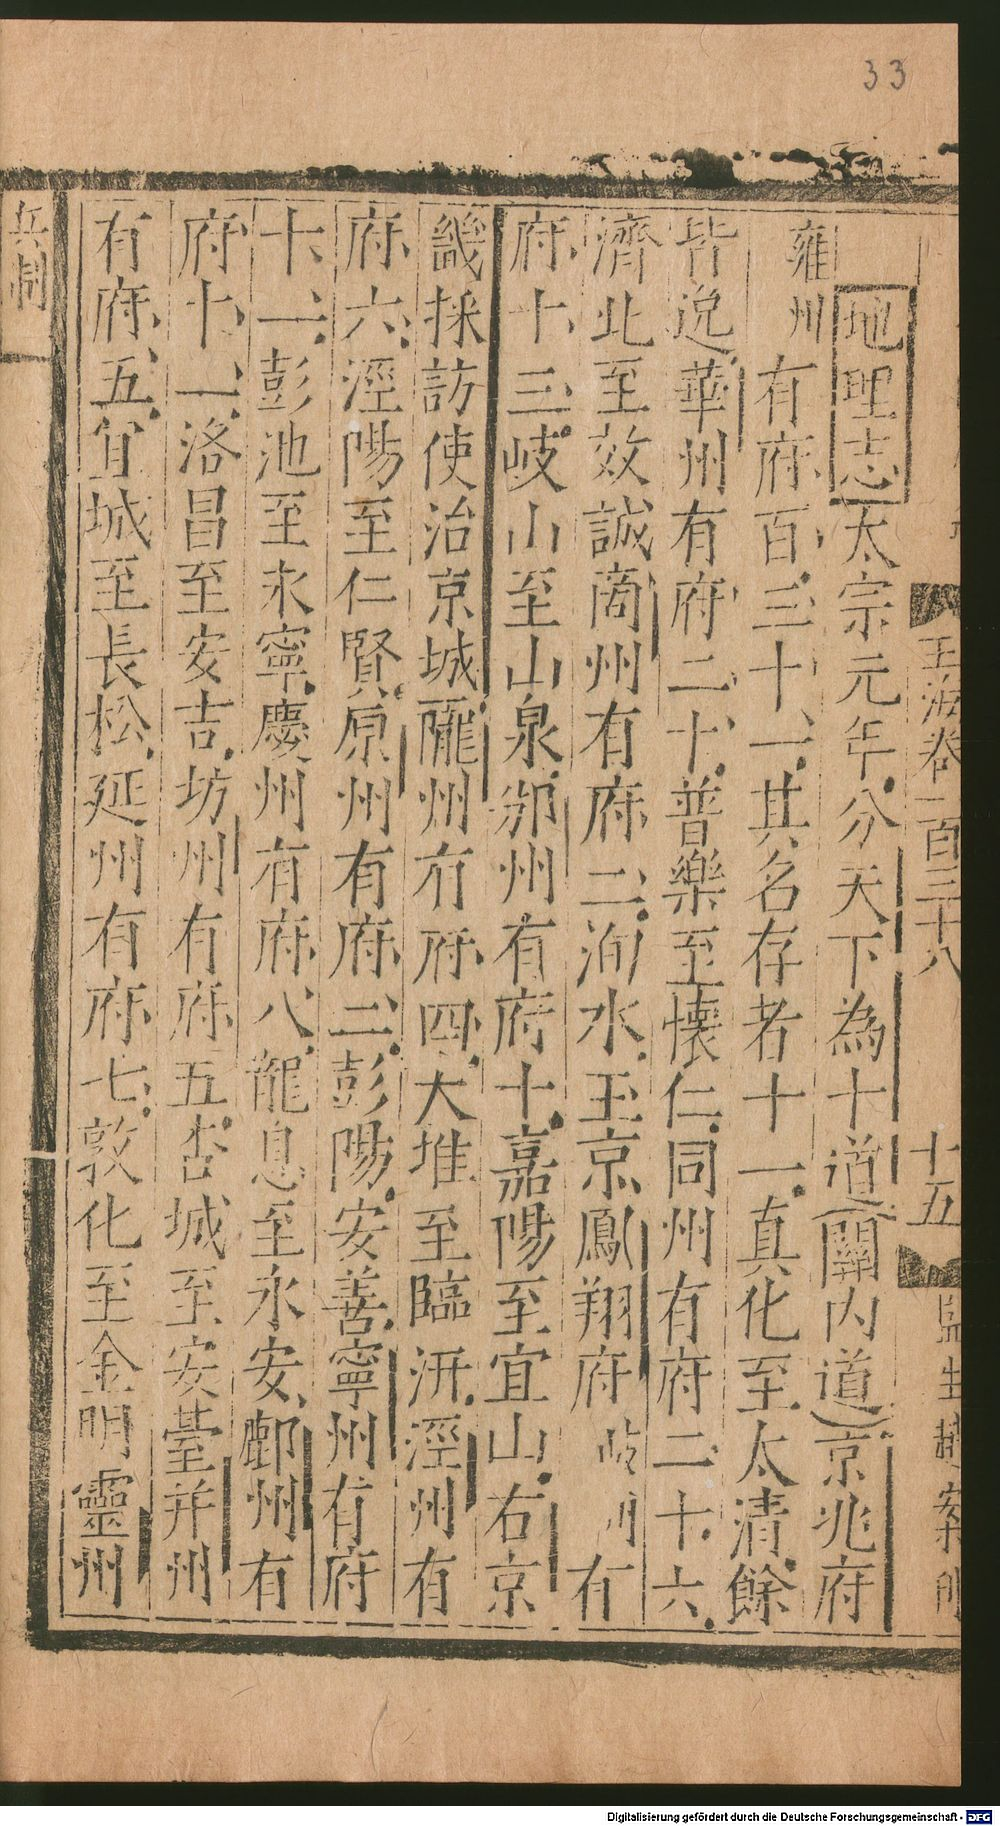 33
玉海卷一百三十八
十五
監生
地理志太宗元年分天下為十道關內道京兆府
雍州有府百三十一其名存者十一真化至太清餘
皆逸華州有府二十普樂至懷仁同州有府二十六
濟北至效誠商州有府二洵水玉京鳳翔府岐州有
府十三岐山至山泉邠州有府十嘉陽至宜山右京
畿採訪使治京城隴州有府四大堆至臨汧涇州有
府六涇陽至仁賢原州有府二彭陽安善寧州有府
十一彭池至永寧慶州有府八龍息至永安鄜州有
府十一洛昌至安吉坊州有府五杏城至安臺并州
有府五宜城至長松延州有府七敦化至金明靈州
兵制
Digitalisierung gefördert durch die Deutsche Forschungsgemeinschaft - DFG